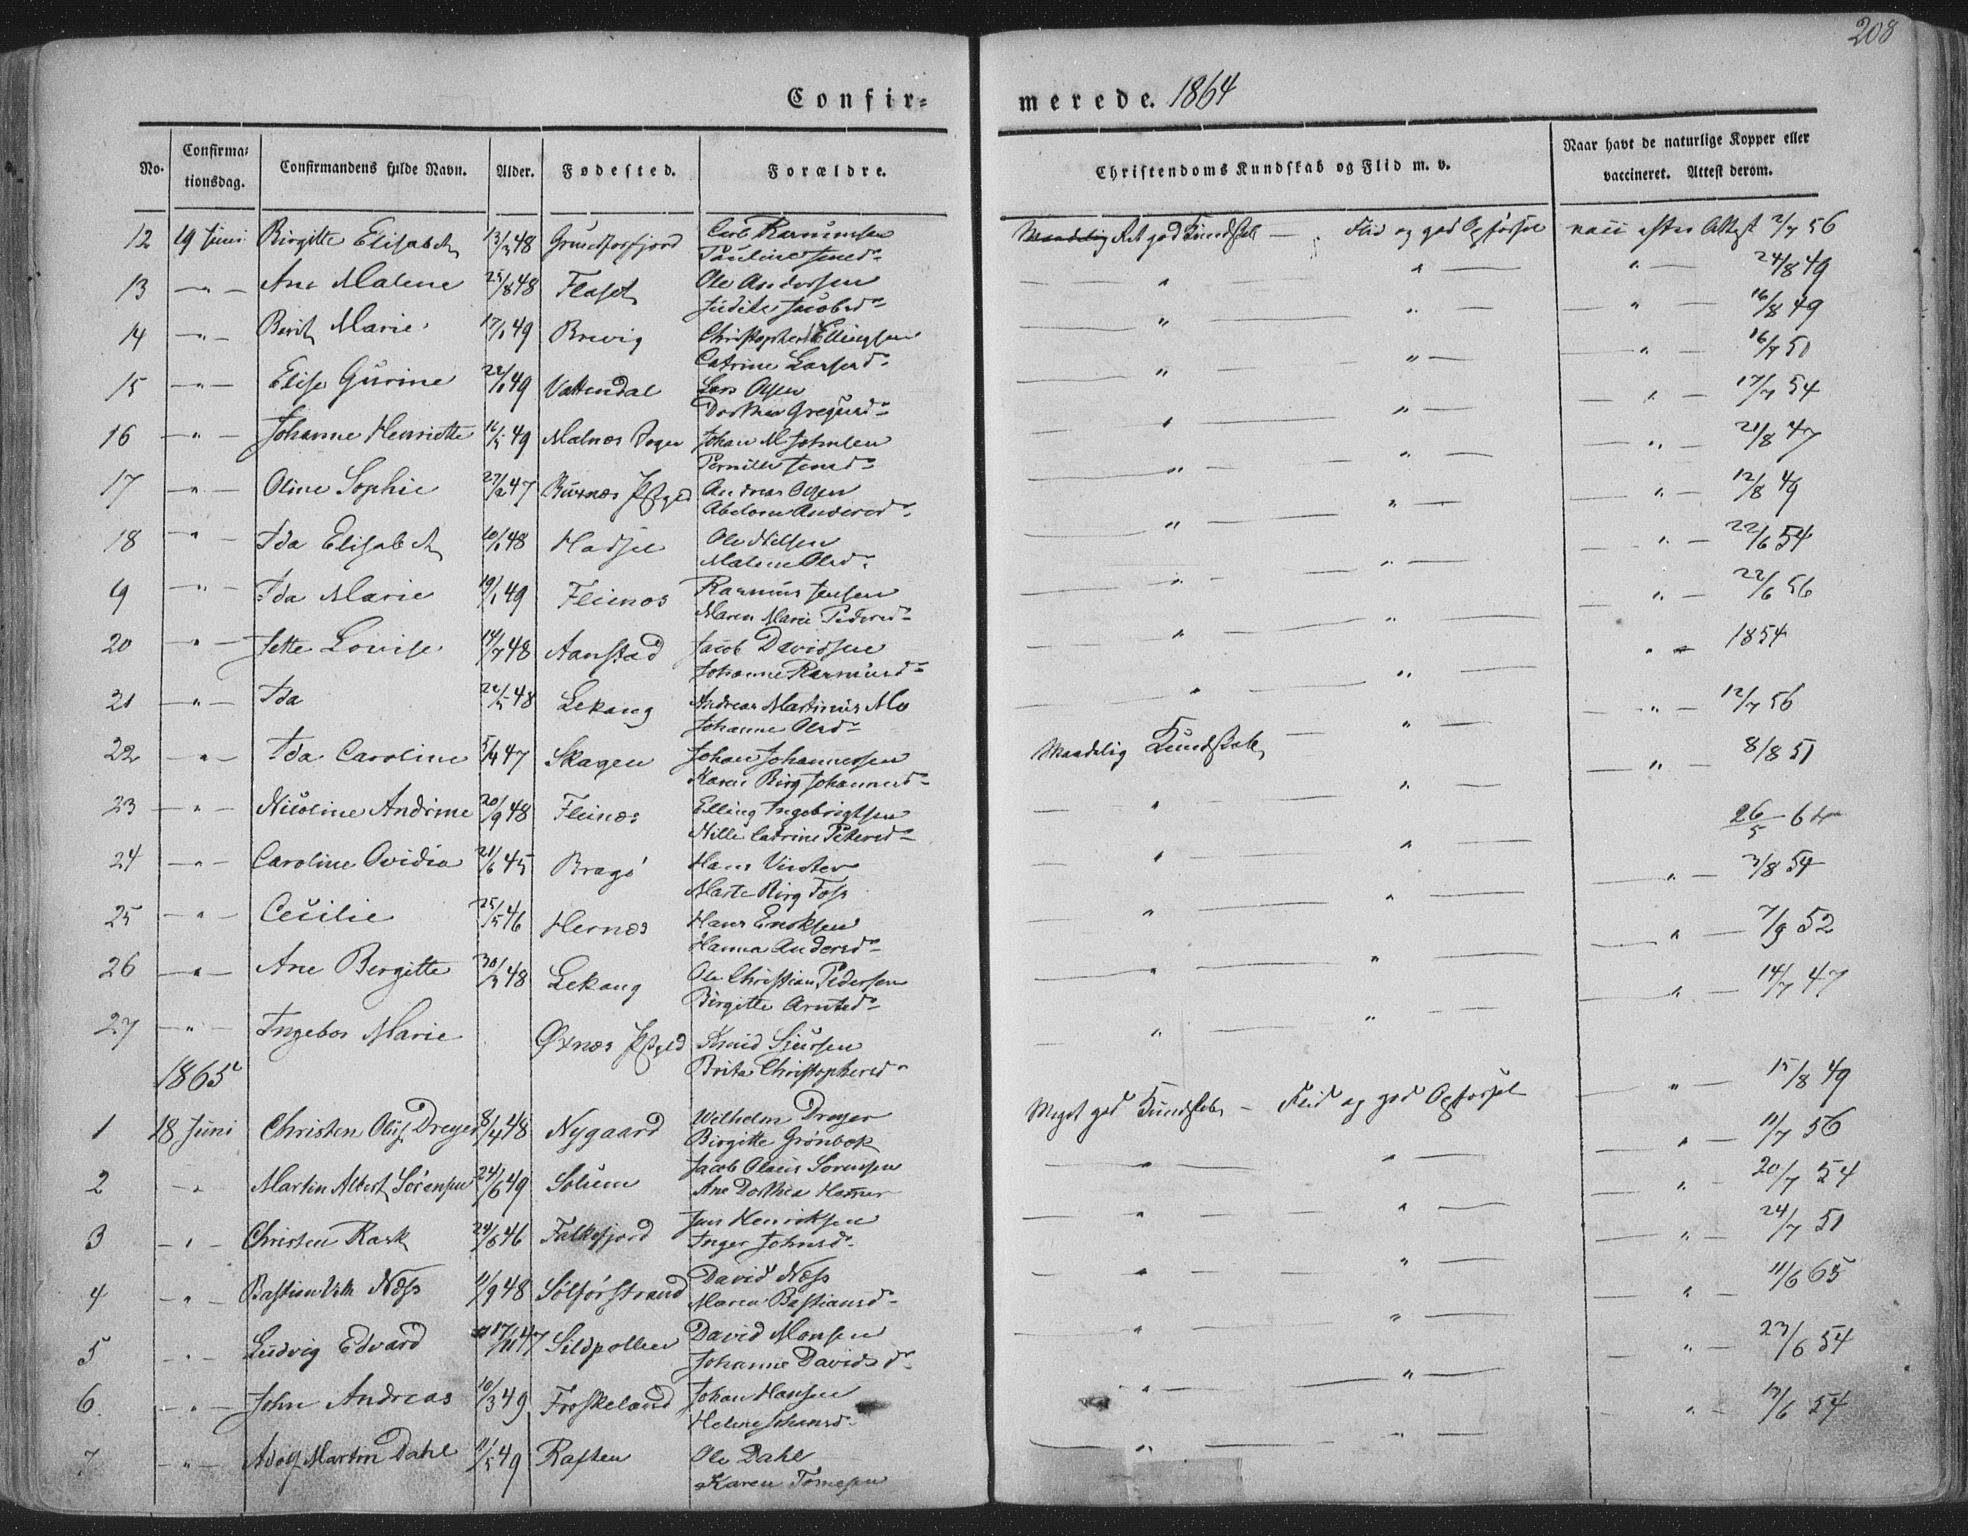 208
Confir=
merede. 1864
No.
Confirma=
tionsdag.
Confirmandens fulde Navn.
Alder.
Fødested.
Forældre.
Christendoms Kundskab og Flid m. v.
Naar havt de naturlige Kopper eller
vaccineret. Attest derom.
12 19 Juni Birgitte Elisabeth 13/3 48 Grundforfjord Carl Rasmussen Ret god Kundskab — Flid og god Opførsel vacc efter Attest 2/7 56
Pauline Jensd
13 — " — Ane Malene 25/8 48 Flaset Ole Andersen — " — " — " — 24/8 49
Judithe Jacobsd
14 — " — Berit Marie 17/1 49 Brevig Christopher Ellingsen — " — " — " — 16/8 49
Catrine Larsensd
15 — " — Elise Gurine 22/1 49 Vattendal Lars Olsen — " — " — " — 16/7 51
Dorthea Gregersd
16 — " — Johanne Henriette 16/5 49 Malnes Sogn Johan M Johnsen — " — " — " — 17/7 54
Pernille Jensd
17 — " — Oline Sophie 27/2 47 Buxnæs Pgjeld Andreas Olsen — " — " — " — 21/8 47
Abelone Andersd
18 — " — Ida Elisabeth 10/1 48 Hadsel Ole Nilsen — " — " — " — 12/8 49
Malene Olsd
19 — " — Ida Marie 19/1 49 Fleinæs Rasmus Jensen — " — " — " — 22/6 54
Maren Marie Pedersd
20 — " — Jette Lovise 14/7 48 Aanstad Jacob Davidsen — " — " — " — 22/6 56
Johanne Rasmusd
21 — " — Ida 22/5 48 Lekang Andreas Martinus Mo — " — " — " — 1854
Johanne Olsd
22 — " — Ida Caroline 5/4 47 Skagen Johan Johannessen Maadelig Kundskab — " — " — 12/7 56
Karen Birg Johannesd
23 — " — Nicoline Andrine 20/9 48 Fleinæs Elling Ingebrigtsen — " — " — " — 8/8 51
Nille Catrine Petersd
24 — " — Caroline Ovidia 21/6 45 Bragø Hans Vinter — " — " — 26/5 64
Marte Birg Foss
25 — " — Cecilie 25/5 46 Hernæs Hans Eriksen — " — " — " — 3/8 54
Hanna Andersd
26 — " — Ane Bergitte 30/3 48 Lekang Ole Christian Pedersen — " — " — " — 7/9 52
Birgitte Arntsd
27 — " — Ingebor Marie Øxnæs Pgjeld Knud Sjursen — " — " — " — 14/7 47
Brita Christophersd
1865
1 18 Juni Christen Oluf Dreyer 8/4 48 Nygaard Wilhelm Dreyer Meget god Kundskab — Flid og god Opførsel " — 15/8 49
Birgitte Grønbok
2 " Martin Albert Sørensen 24/6 49 Solum Jacob Olaus Sørensen — " — " — " — 11/7 56
Ane Dorthea Hamer
3 — " — Christen Rask 24/6 46 Falkfjord Jens Henriksen — " — " — " — 20/7 54
Inger Johnsd
4 — " — Bastian Næss 11/9 48 Sølførstrand David Næss — " — " — " — 24/7 51
Maren Bastiansd
5 — " — Ludvig Edvard 17/11 47 Sildpollen David Monsen — " — " — " — 11/6 65
Johanne Davidsd
6. — " — John Andreas 10/3 49 Froskeland Johan Hansen — " — " — " — 23/6 54
Helene Johansd
7 — " — Adolf Martin Dahl 11/5 49 Raften Ole Dahl — " — " — 13/6 54
Karen Tomesen